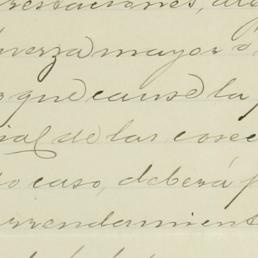 restaciones, 
fuerza mayor ó
que cause la p
ial de las cosec
caso, deberá p
rrendamient